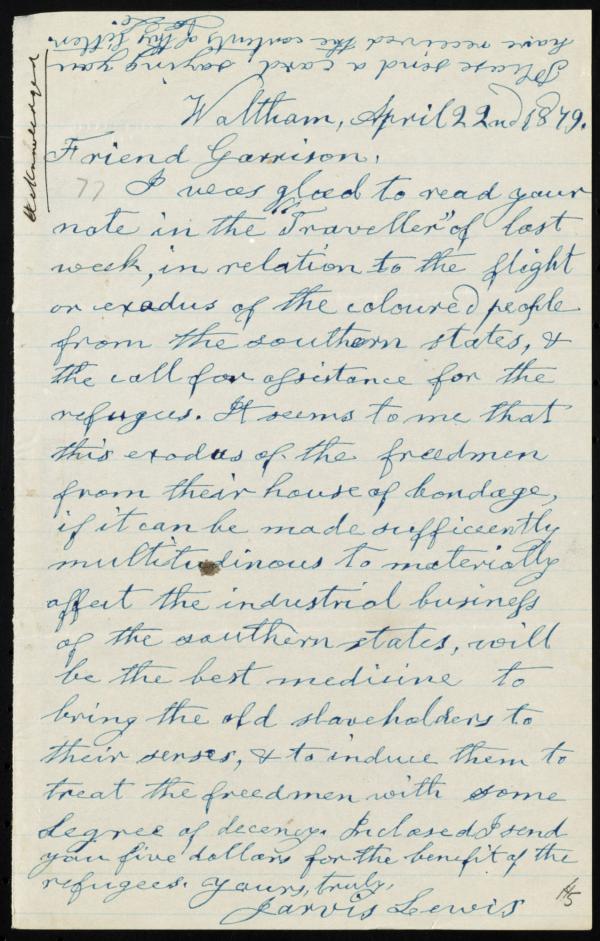 Please send a card saying you
have received the contents of this letter.
J. L.
Acknowledged
Waltham, April 22nd 1879.
Friend Garrison,
77
I was glad to read your
note in the "Traveller" of last
week, in relation to the flight
or exodus of the coloured people
from the southern states, &
the call for assistance for the
refugees. It seems to me that
this exodus of the freedmen
from their house of bondage,
if it can be made sufficeently
multitudinous to materially
affect the industrial business
of the southern states, will
be the best medicine to
bring the old slaveholders to
their senses, & to induce them to
treat the freedmen with some
degree of decency. Inclosed I send
you five dollars for the benefit of the
refugees. Yours, truly,
Jarvis Lewis